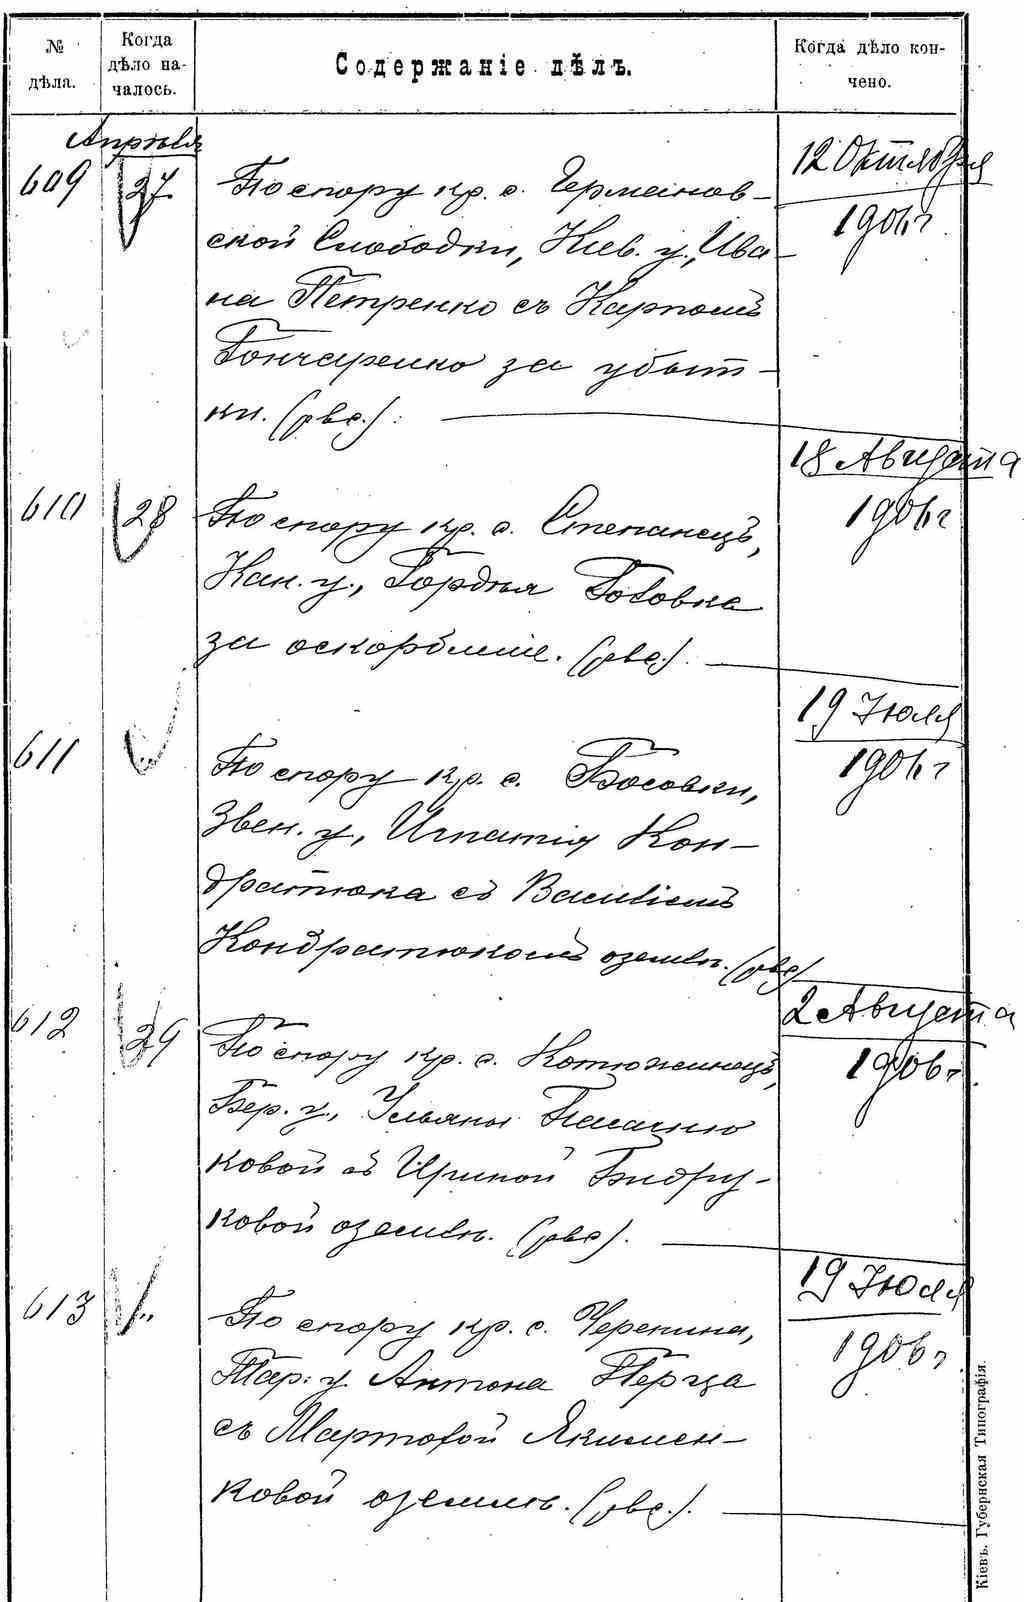 № дѣла.
Когда дѣло на-
чалось.
Содержаніе дѣлъ.
Когда дѣло кон-
чено.
Апрѣля
609
27
По спору кр. с. Германов-
ской Слободки, Кіев. у., Ива-
на Петренко съ Карпомъ
Гончаренко за убыт-
ки. (рвс.).
12 Октября
1906 г
610
28
По спору кр. с. Степанецъ,
Кан. у., Гордѣя Бовка
за оскорбленіе. (рвс.).
18 Августа
1906 г
611
По спору кр. с. Босовки,
Звен. у., Игнатія Кон-
дратюка съ Василіемъ
Кондратюкомъ о землѣ. (рвс)
19 Іюля
1906 г
612
29
По спору кр. с. Котюжинецъ,
Бер. у., Ульяны
ковой съ Ириной Бндру-
ковой о землѣ. (рвс).
2 Августа
1906 г.
613
"
По спору кр. с. Черепина,
Тар. у. Антона Перца
съ Мартой Якимен-
ковой о землѣ. (рвс.).
19 Іюля
1906 г.
Кіевъ. Губернская Типографія.